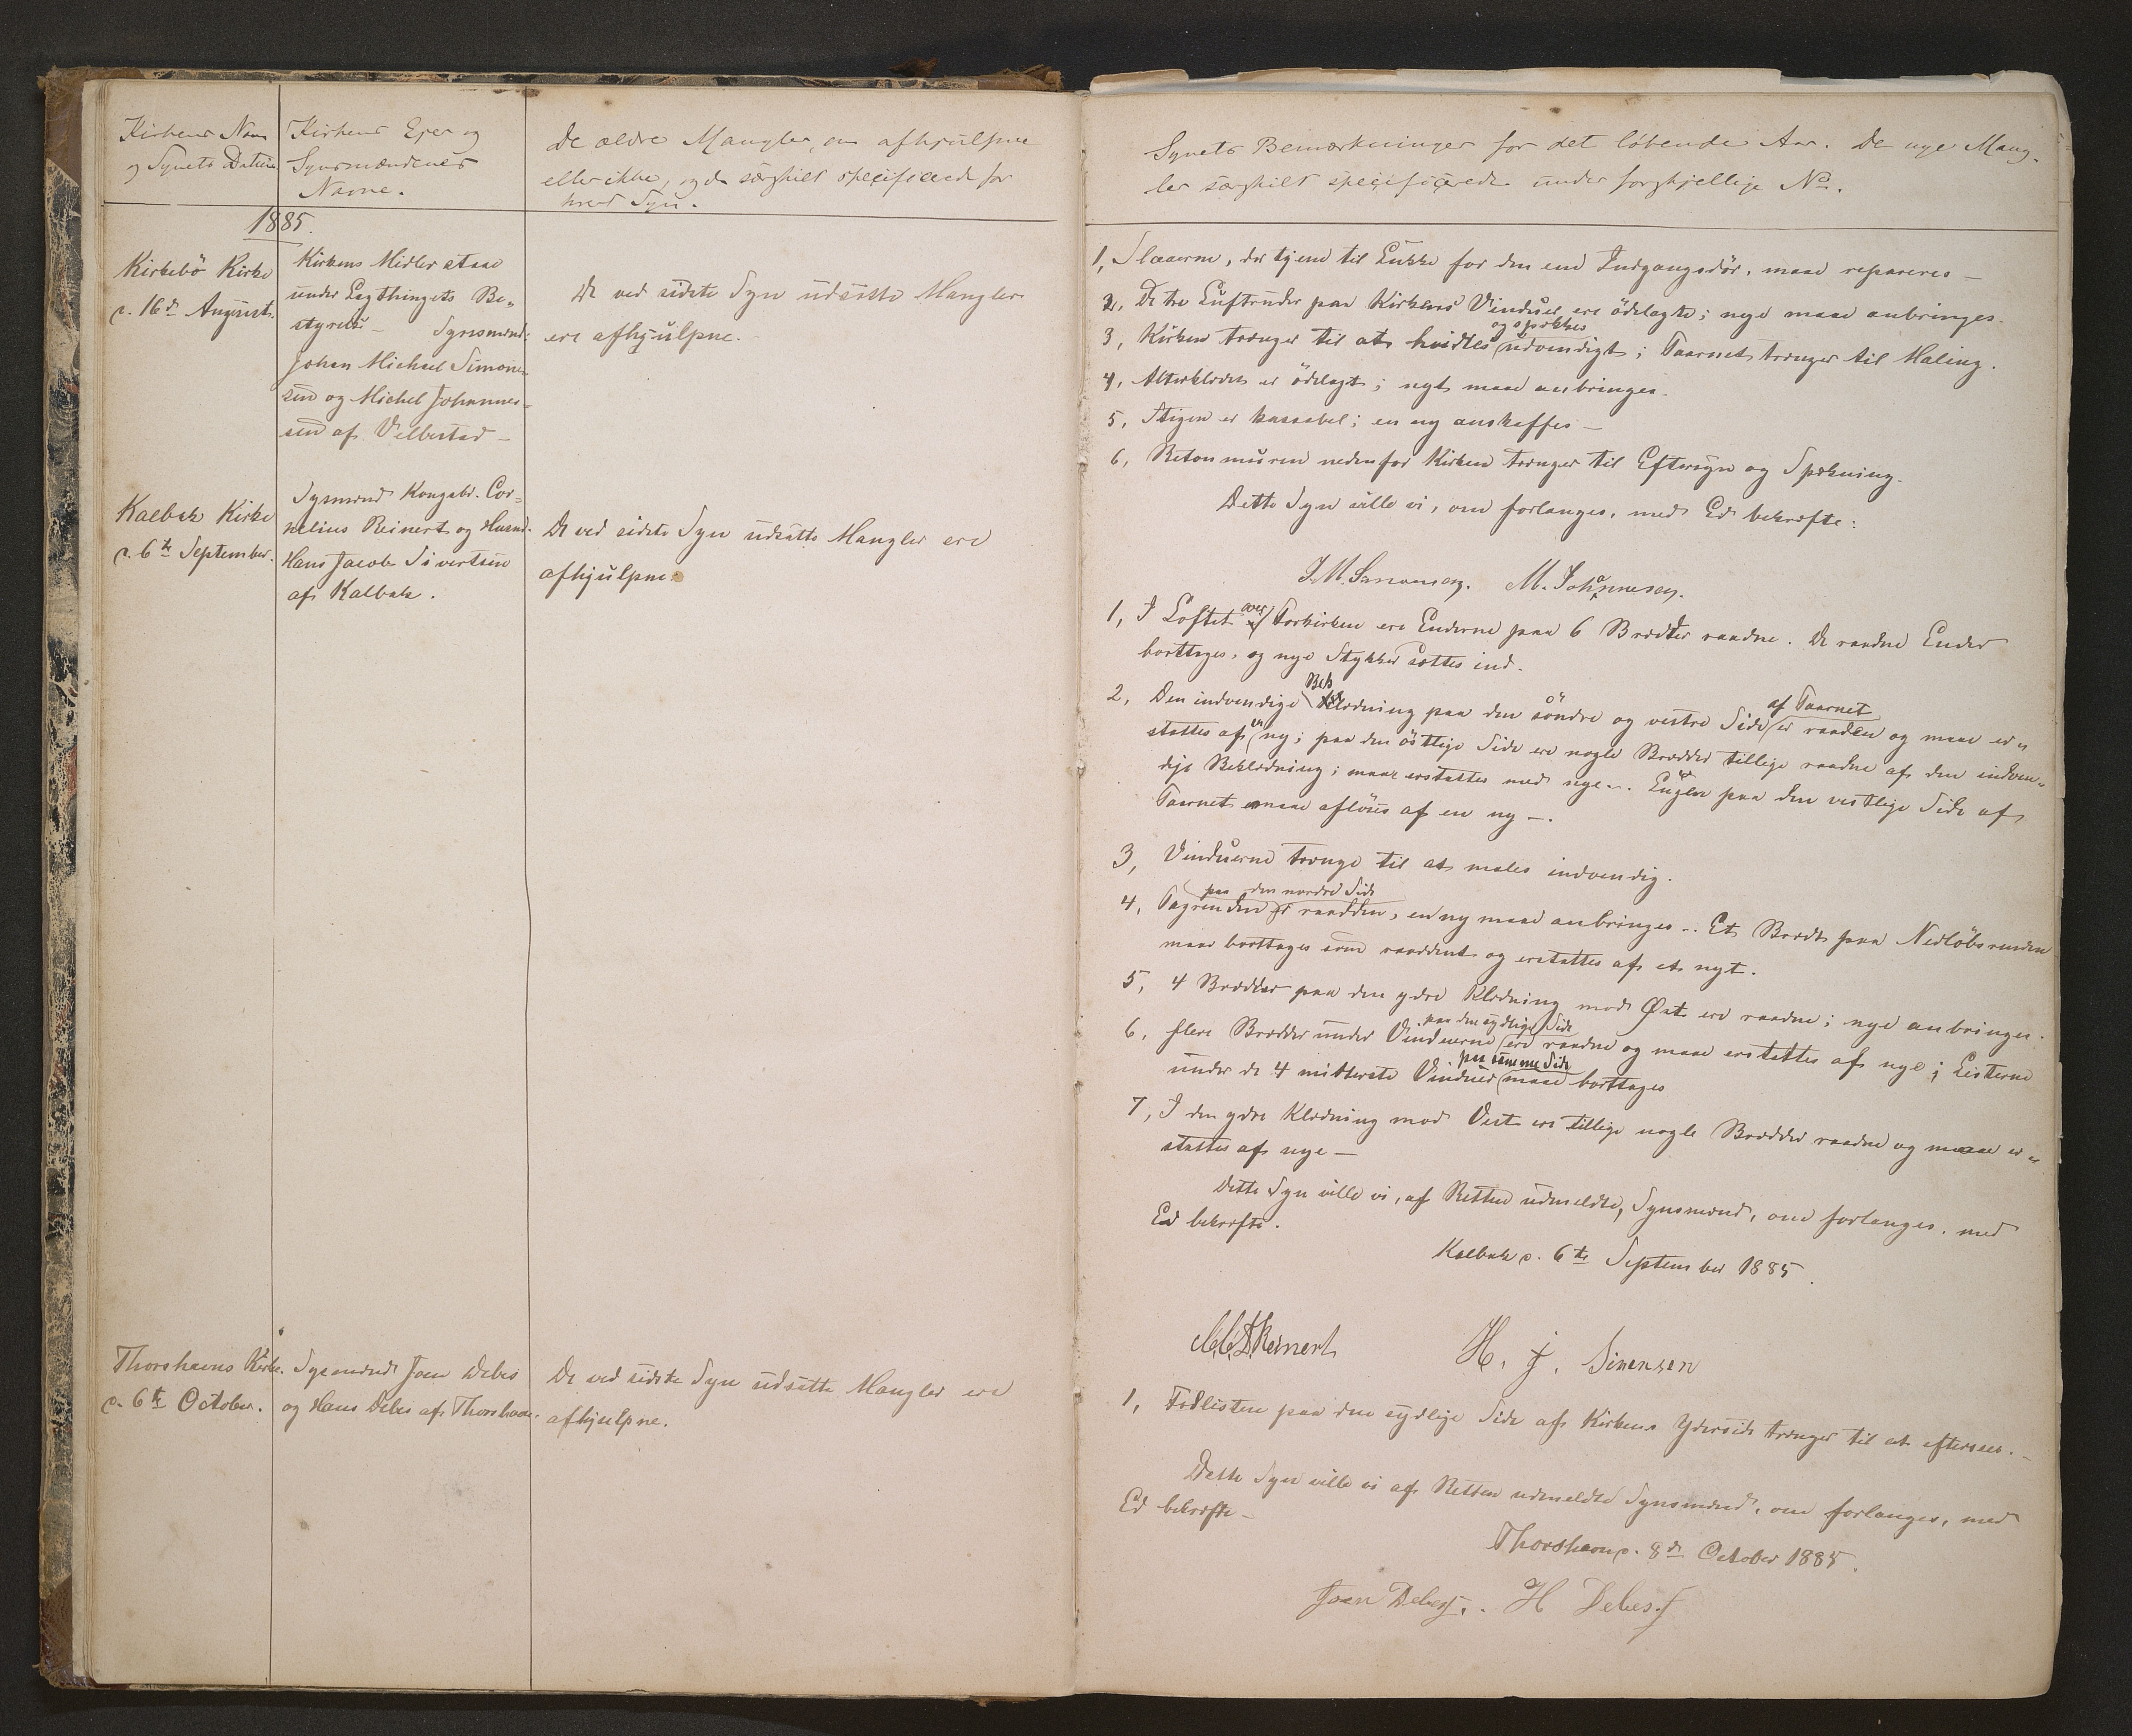 Kirkens Navn
og Synets Datum
Kirkens Ejer og
Synsmændenes
Navne.
De ældre Mangler, om afhjulpne
eller ikke, og da særskilt specificered for
hvert Syn.
1885.
Kirkebö Kirke
d. 16de August.
Kirkens Midler staae
under Lagthingets Be=
styrelse – Synsmænd:
Johan Michael Simon=
sen og Michel Johannes=
sen af Velbestad –
De ved sidste Syn udsatte Mangler
ere afhjulpne.
Kalbak Kirke
d. 6te September.
Synsmænd Kongsbd. Cor=
nelius Reinert og Husmd.
Hans Jacob Sivertsen
af Kalbak.
De ved sidste Syn udsatte Mangler ere
afhjulpne.
Thorshavns Kirke.
d. 6te October.
Synsmænd Joen Debes
og Hans Debes af Thorshavn.
De ved sidste Syn udsatte Mangler ere
afhjulpne.
Synets Bemærkninger for det løbende Aar. De nye Mang-
ler særskilt specificerede under forskjellige No.
1, Slaaerne, der tjene til Lukke for den ene Indgangsdør, maae repareres –
2, De tre Luftruder paa Kirkens Vinduer ere ödelagte; nye maae anbringes.
og spækkes
3, Kirken trænger til at hvidtes udvendigt; Taarnet trænger til Maling.
4, Alterklædet er ödelagt; nyt maae anbringes.
5, Stigen er kassabel; en ny anskaffes –
6, Betonmuren nedenfor Kirken trænger til Eftersyn og Spækning.
Dette Syn ville vi, om forlanges, med Ed bekræfte:
J. M. Simonsen. M. Johannesen.
1, I Loftet over Forkirken ere Enderne paa 6 Brædder raadne. De raadne Ender
borttages, og nye Stykker sættes ind.
2, Den indvendige Beklædning paa den söndre og vestre Side af Taarnet er raaden og maae er=
stattes af en ny; paa den östlige Side ere nogle Brædder tillige raadne af den indven=
dige Beklædning; maae erstattes med nye –. Lugen paa den vestlige Side af
Taarnet maae aflöses af en ny –.
3, Vinduerne trænge til at males indvendig.
paa den nordre Side
4, Tagrenden er raadden, en ny maae anbringes –. Et Bræt paa Nedløbsrenden
maae borttages som raaddent og erstattes af et nyt.
5, 4 Brædder paa den ydre Klædning mod Øst ere raadne; nye anbringes.
paa den sydlige Side
6, flere Brædder under Vinduerne ere raadne og maae erstattes af nye; Listerne
paa samme Side
under de 4 midterste Vinduer maae borttages
7, I den ydre Klædning mod Vest ere tillige nogle Brædder raadne og maae er=
stattes af nye –
Dette Syn ville vi, af Retten udmeldte, Synsmænd, om forlanges, med
Ed bekræfte.
Kalbak d. 6te September 1885.
Reinert H. J. Sivensen
1, Fodlisten paa den sydlige Side af Kirkens Yderside trænger til at eftersees. –
Dette Syn ville vi af Retten udmeldte Synsmænd, om forlanges, med
Ed bekræfte –
Thorshavn d. 8de October 1885.
Joen Debes. H Debes.